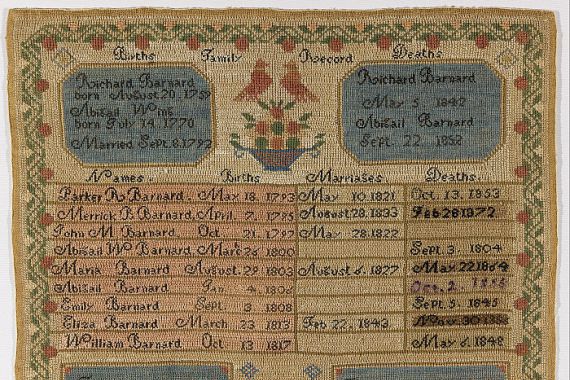 Births Family Record Deaths
Richard Barnard
born August 20, 1757
Abigail Wms
born July 14, 1770
Married Sept. 8, 1792
Richard Barnard
May 5 1847
Abigail Barnard
Sept. 22 1858
Names. Births Marriages Deaths.
Parker R Barnard. May 18. 1793 May 10 1821 Oct. 13. 1853
Merrick B Barnard. April. 7. 1795 August 28. 1833 Feb 28 1872
John M Barnard Oct 21. 1797 May 28. 1822
Abigail W Barnard March 26 1800 Sept. 3. 1804
Maria Barnard August. 29 1803 August 6. 1827 May 22 1864
Abigail Barnard Jan 4. 1806 Oct. 2.
Emily Barnard Sept. 3 1808 Sept 5. 1845
Eliza Barnard March 23 1813 Feb 22. 1843 Nov 30
William Barnard Oct 13 1817 May 6. 1848